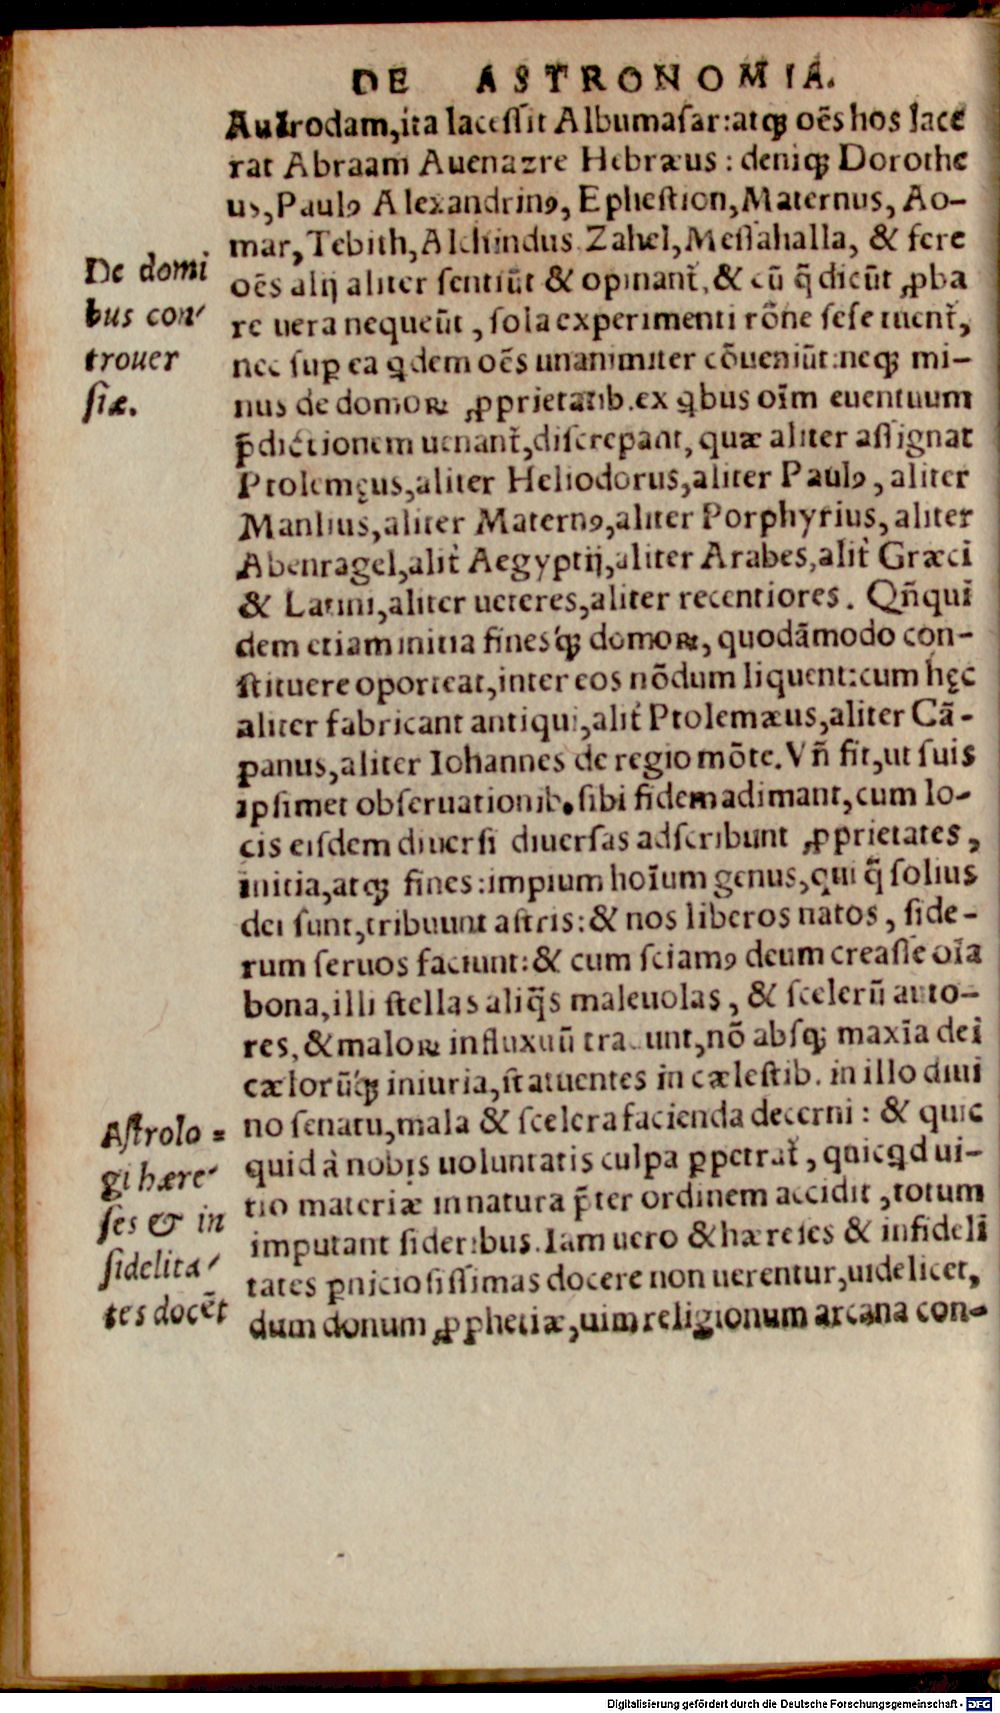 DE ASTRONOMIA.
Auerodam, ita lacessit Albumasar: atqꝫ oẽs hos lace
rat Abraam Auenazre Hebræus: deniqꝫ Dorothe
us, Paulꝰ Alexandrinꝰ, Ephestion, Maternus, Ao-
mar, Tebith, Alchindus Zahel, Messahalla, & fere
oẽs alij aliter sentiũt & opinanť, & cũ q̃ dicũt ꝓba
re uera nequeũt, sola experimenti rõne sese tuenť,
nec suꝑ ea ꝗdem oẽs unanimiter cõueniũt: neqꝫ mi-
nus de domoꝝ ꝓprietatib. ex ꝗbus oĩm euentuum
p̃dictionem uenanť, discrepant, quæ aliter assignat
Ptolemęus, aliter Heliodorus, aliter Paulꝰ, aliter
Manlius, aliter Maternꝰ, aliter Porphyrius, aliter
Abenragel, aliť Aegyptij, aliter Arabes, aliť Græci
& Latini, aliter ueteres, aliter recentiores. Qñqui
dem etiam initia finesqꝫ domoꝝ, quodãmodo con-
stituere oporteat, inter eos nõdum liquent: cum hęc
aliter fabricant antiqui, aliť Ptolemæus, aliter Cã-
panus, aliter Iohannes de regio mõte. Vñ fit, ut suis
ipsimet obseruationib. sibi fidem adimant, cum lo-
cis eisdem diuersi diuersas adscribunt ꝓprietates,
initia, atqꝫ fines: impium hoĩum genus, qui q̃ solius
dei sunt, tribuunt astris: & nos liberos natos, side-
rum seruos faciunt: & cum sciamꝰ deum creasse oĩa
bona, illi stellas aliq̃s maleuolas, & scelerũ auto-
res, & maloꝝ influxuũ tradunt, nõ absqꝫ maxĩa dei
cælorũqꝫ iniuria, statuentes in cælestib. in illo diui
no senatu, mala & scelera facienda decerni: & quic
quid à nobis uoluntatis culpa ꝑpetrať, quicꝗd ui-
tio materiæ in natura p̃ter ordinem accidit, totum
imputant sideribus. Iam uero & hæreses & infideli
tates ꝑniciosissimas docere non uerentur, uidelicet,
dum donum ꝓphetiæ, uim religionum arcana con-
De domi
bus con-
trouer
siæ.
Astrolo=
gi hære-
ses & in
fidelita-
tes docẽt
Digitalisierung gefördert durch die Deutsche Forschungsgemeinschaft - DFG